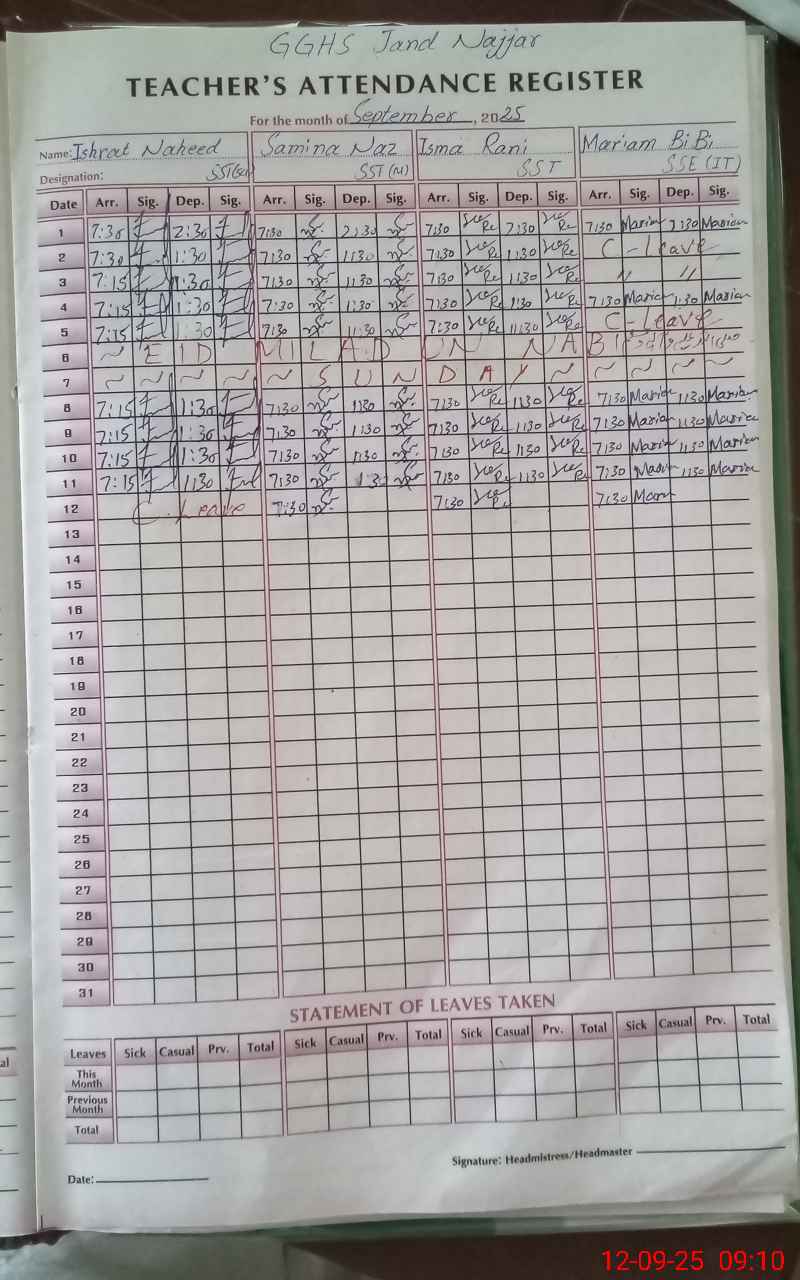 GGHS Jand Najjar
TEACHER'S ATTENDANCE REGISTER
For the month of September, 2025
Name: Ishrat Naheed Samina Naz Isma Rani Mariam BiBi
Designation: SST(Sc) SST(M) SST SSE(IT)
Date Arr. Sig. Dep. Sig. Arr. Sig. Dep. Sig. Arr. Sig. Dep. Sig. Arr. Sig. Dep. Sig.
1 7:30 2:30 7:30 2:30 7:30 2:30 7:30 Mariam 2:30 Mariam
2 7:30 1:30 7:30 1:30 7:30 1:30 C-leave
3 7:15 1:30 7:30 1:30 7:30 1:30 " "
4 7:15 1:30 7:30 1:30 7:30 1:30 7:30 Mariam 1:30 Mariam
5 7:15 1:30 7:30 1:30 7:30 1:30 C-leave
6 ~ EID MILAD UN NABI
7 ~ ~ ~ ~ ~ SUNDAY ~ ~ ~ ~ ~
8 7:15 1:30 7:30 1:30 7:30 1:30 7:30 Mariam 1:30 Mariam
9 7:15 1:30 7:30 1:30 7:30 1:30 7:30 Mariam 1:30 Mariam
10 7:15 1:30 7:30 1:30 7:30 1:30 7:30 Mariam 1:30 Mariam
11 7:15 1:30 7:30 1:30 7:30 1:30 7:30 Mariam 1:30 Mariam
12 C.Leave 7:30 7:30 7:30 Mariam
13
14
15
16
17
18
19
20
21
22
23
24
25
26
27
28
29
30
31
STATEMENT OF LEAVES TAKEN
Leaves Sick Casual Prv. Total Sick Casual Prv. Total Sick Casual Prv. Total Sick Casual Prv. Total
This Month
Previous Month
Total
Signature: Headmistress/Headmaster
Date:
12-09-25 09:10